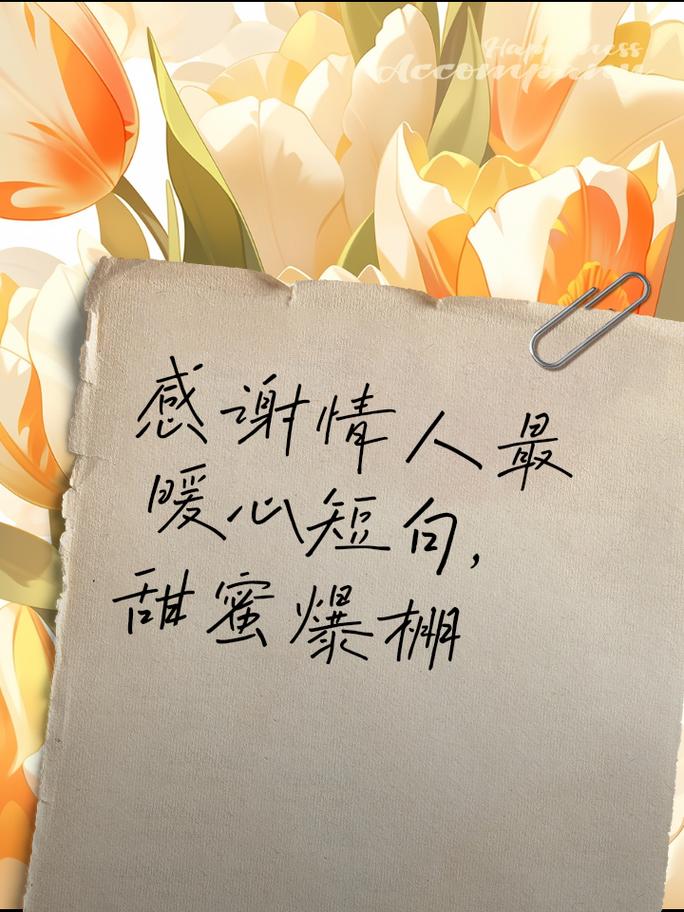 Happiness
Accompany
感谢情人最
暖心短句，
甜蜜爆棚